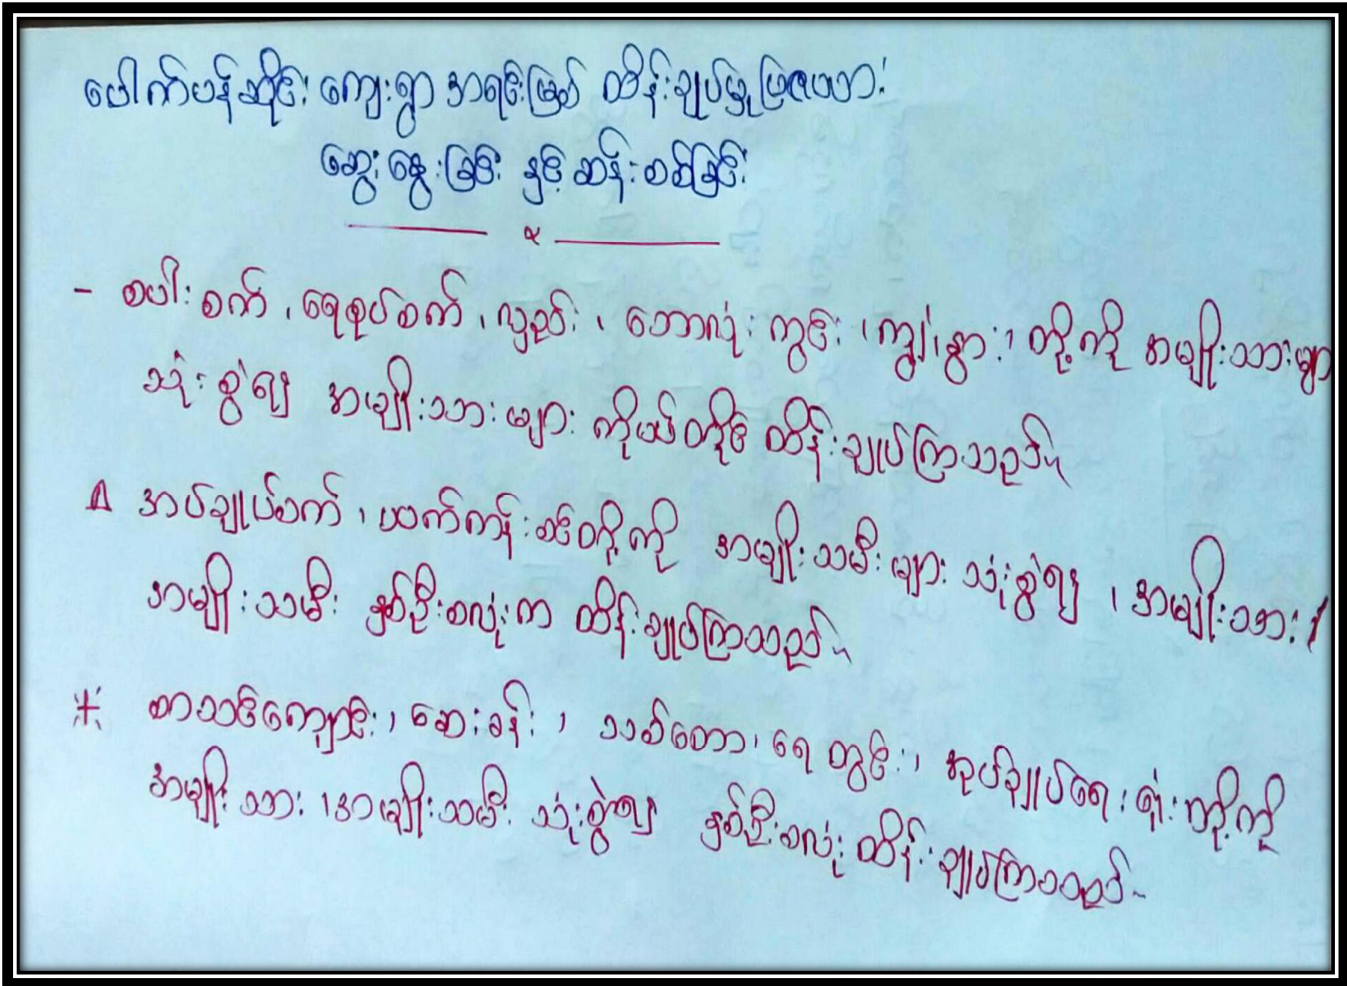 ပေါက်ပန်ဆိုင်း ကျေးရွာ အရင်းမြစ် ထိန်းချုပ်မှု ပြဇယား
ဆွေးနွေးခြင်း နှင့် ဆန်းစစ်ခြင်း
- စပါးစက် ၊ ရေစုပ်စက် ၊ လှည်း ၊ ဘောလုံးကွင်း ၊ ကျွဲ၊ နွား ၊ တို့ကို အမျိုးသားများ
သုံးစွဲ၍ အမျိုးသားများ ကိုယ်တိုင် ထိန်းချုပ်ကြသည်။
အပ်ချုပ်စက် ၊ ယက်ကန်းစင်တို့ကို အမျိုးသမီးများ သုံးစွဲ၍ ၊ အမျိုးသား /
အမျိုးသမီး နှစ်ဦးစလုံးက ထိန်းချုပ်ကြသည်။
စာသင်ကျောင်း ၊ ဆေးခန်း ၊ သစ်တော ၊ ရေတွင်း ၊ အုပ်ချုပ်ရေးရုံးတို့ကို
အမျိုးသား ၊ အမျိုးသမီး သုံးစွဲ၍ နှစ်ဦးစလုံး ထိန်းချုပ်ကြသည်။